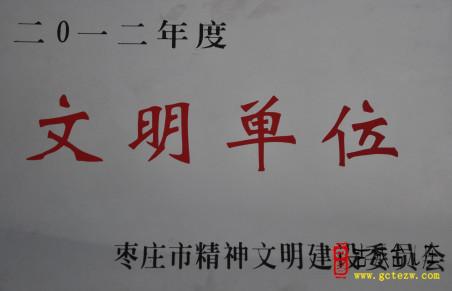 二０一二年度
文明单位
枣庄市精神文明建设委员会
www.gctezw.com